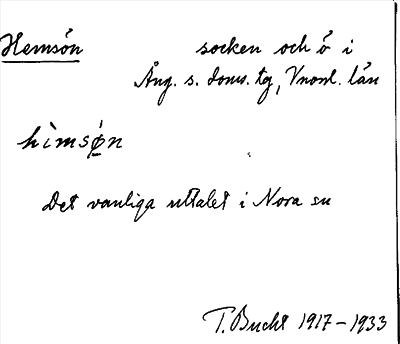 Hemsön socken och ö i
Ång. s. doms. tg, Vnorrl. län
hìmsø̣n
Det vanliga uttalet i Nora sn
T. Bucht 1917-1933